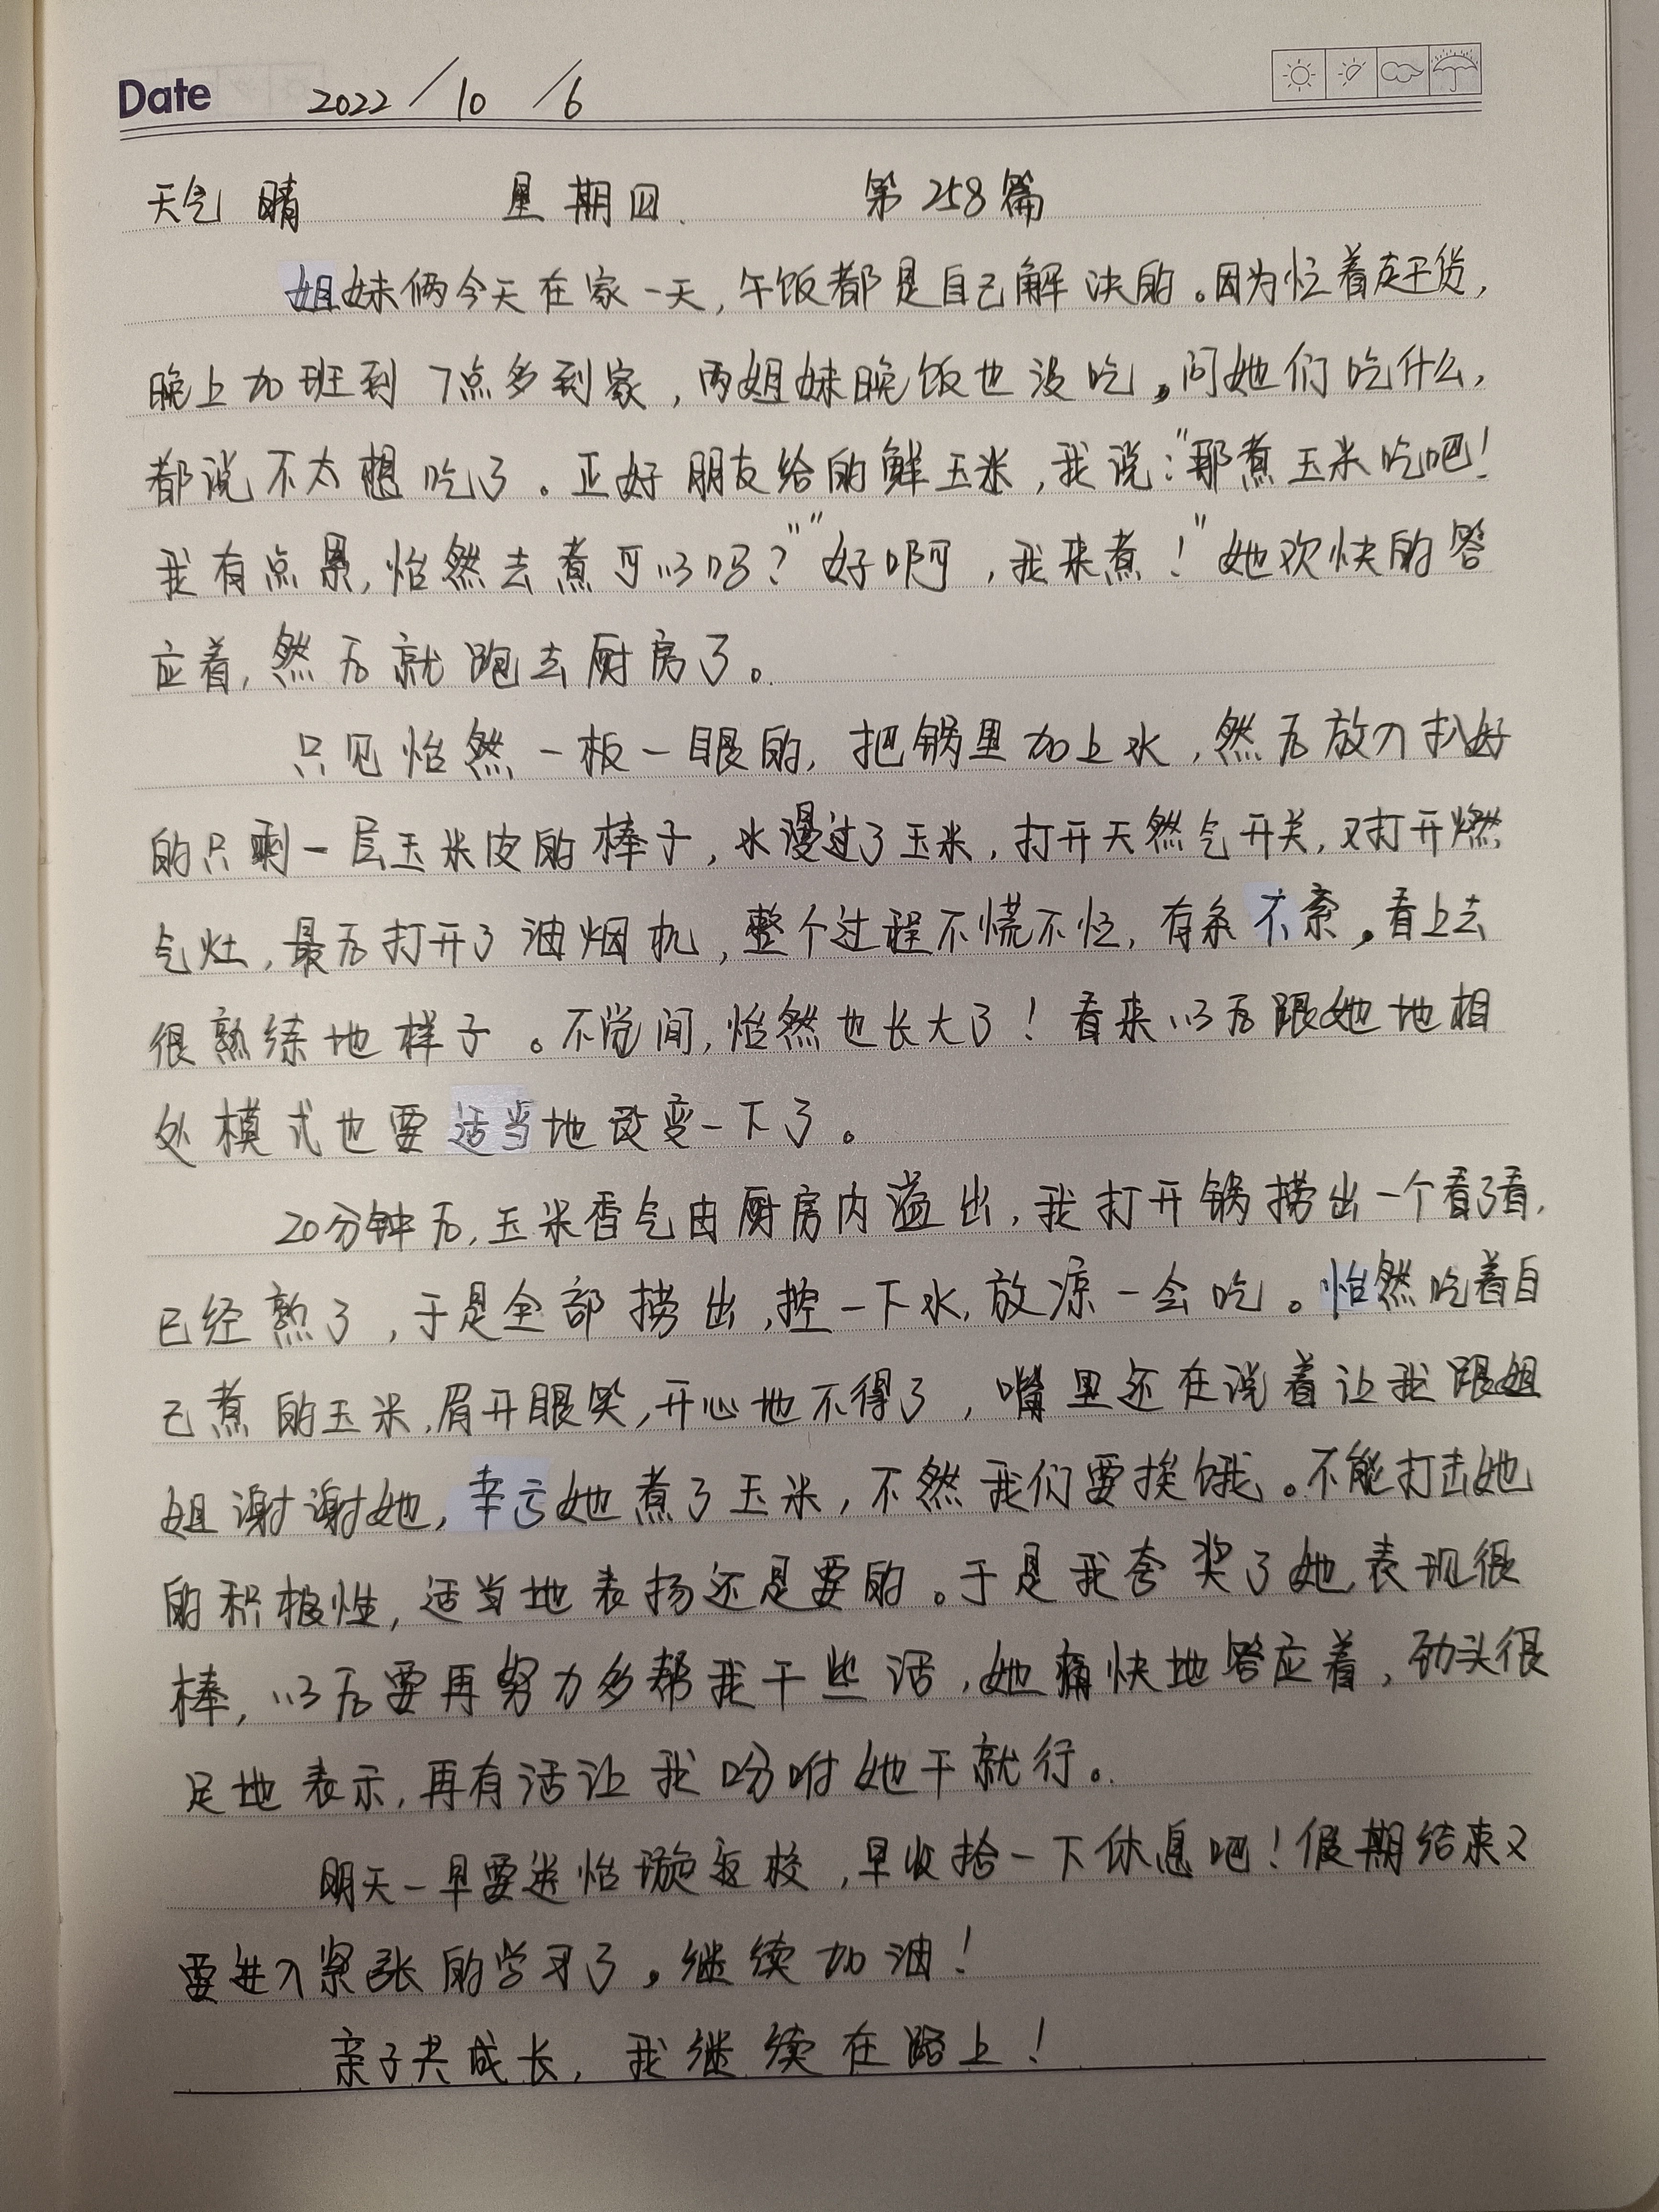 Date 2022/10/6
天气 晴 星期四. 第258篇
姐妹俩今天在家一天,午饭都是自己解决的。因为忙着赶货,
晚上加班到7点多到家,两姐妹晚饭也没吃。问她们吃什么,
都说不太想吃了。正好朋友给的鲜玉米,我说:"那煮玉米吃吧!
我有点累,怡然去煮可以吗?""好啊,我来煮!"她欢快的答
应着,然后就跑去厨房了。
只见怡然一板一眼的,把锅里加上水,然后放入扒好
的只剩一层玉米皮的棒子,水漫过了玉米,打开天然气开关,又打开燃
气灶,最后打开了油烟机,整个过程不慌不忙,有条不紊。看上去
很熟练地样子。不觉间,怡然也长大了!看来以后跟她地相
处模式也要适当地改变一下了。
20分钟后,玉米香气由厨房内溢出,我打开锅捞出一个看了看,
已经熟了,于是全部捞出,控一下水,放凉一会吃。怡然吃着自
己煮的玉米,眉开眼笑,开心地不得了,嘴里还在说着让我跟姐
姐谢谢她,幸亏她煮了玉米,不然我们要挨饿。不能打击她
的积极性,适当地表扬还是要的。于是我夸奖了她,表现很
棒,以后要再努力多帮我干些活,她痛快地答应着,劲头很
足地表示,再有活让我吩咐她干就行。
明天一早要送怡璇返校,早收拾一下休息吧!假期结束又
要进入紧张的学习了。继续加油!
亲子共成长,我继续在路上!